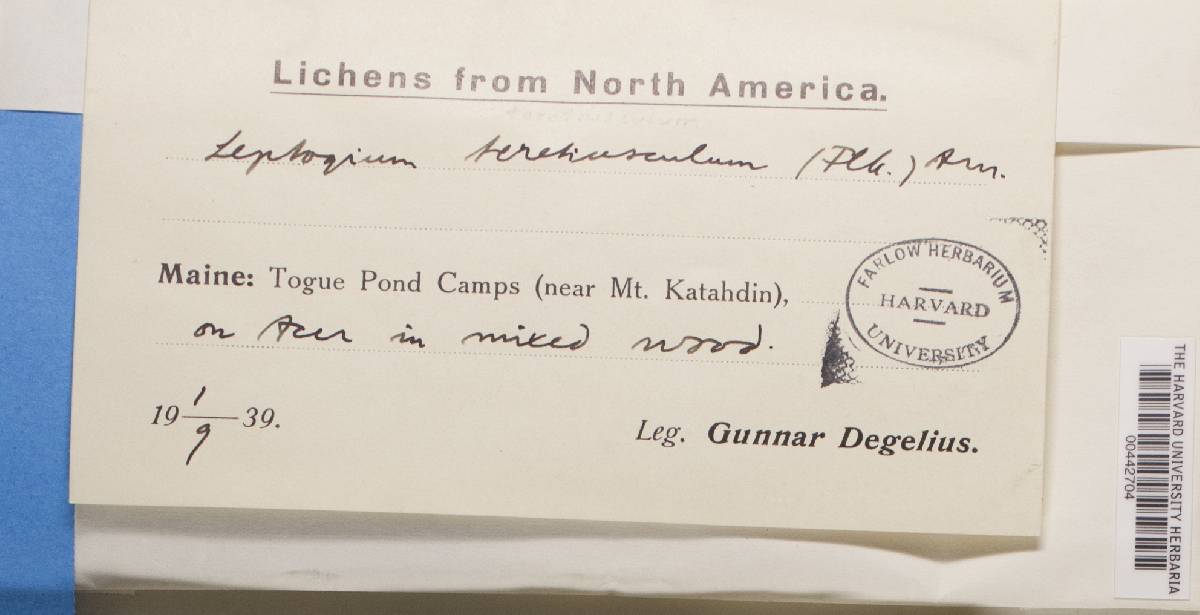 Lichens from North America.
Leptogium teretiusculum (Flk.) Arn.
Maine: Togue Pond Camps (near Mt. Katahdin),
on Acer in mixed wood.
19 1/9 39.
Leg. Gunnar Degelius.
FARLOW HERBARIUM
HARVARD
UNIVERSITY
THE HARVARD UNIVERSITY HERBARIA
00442704